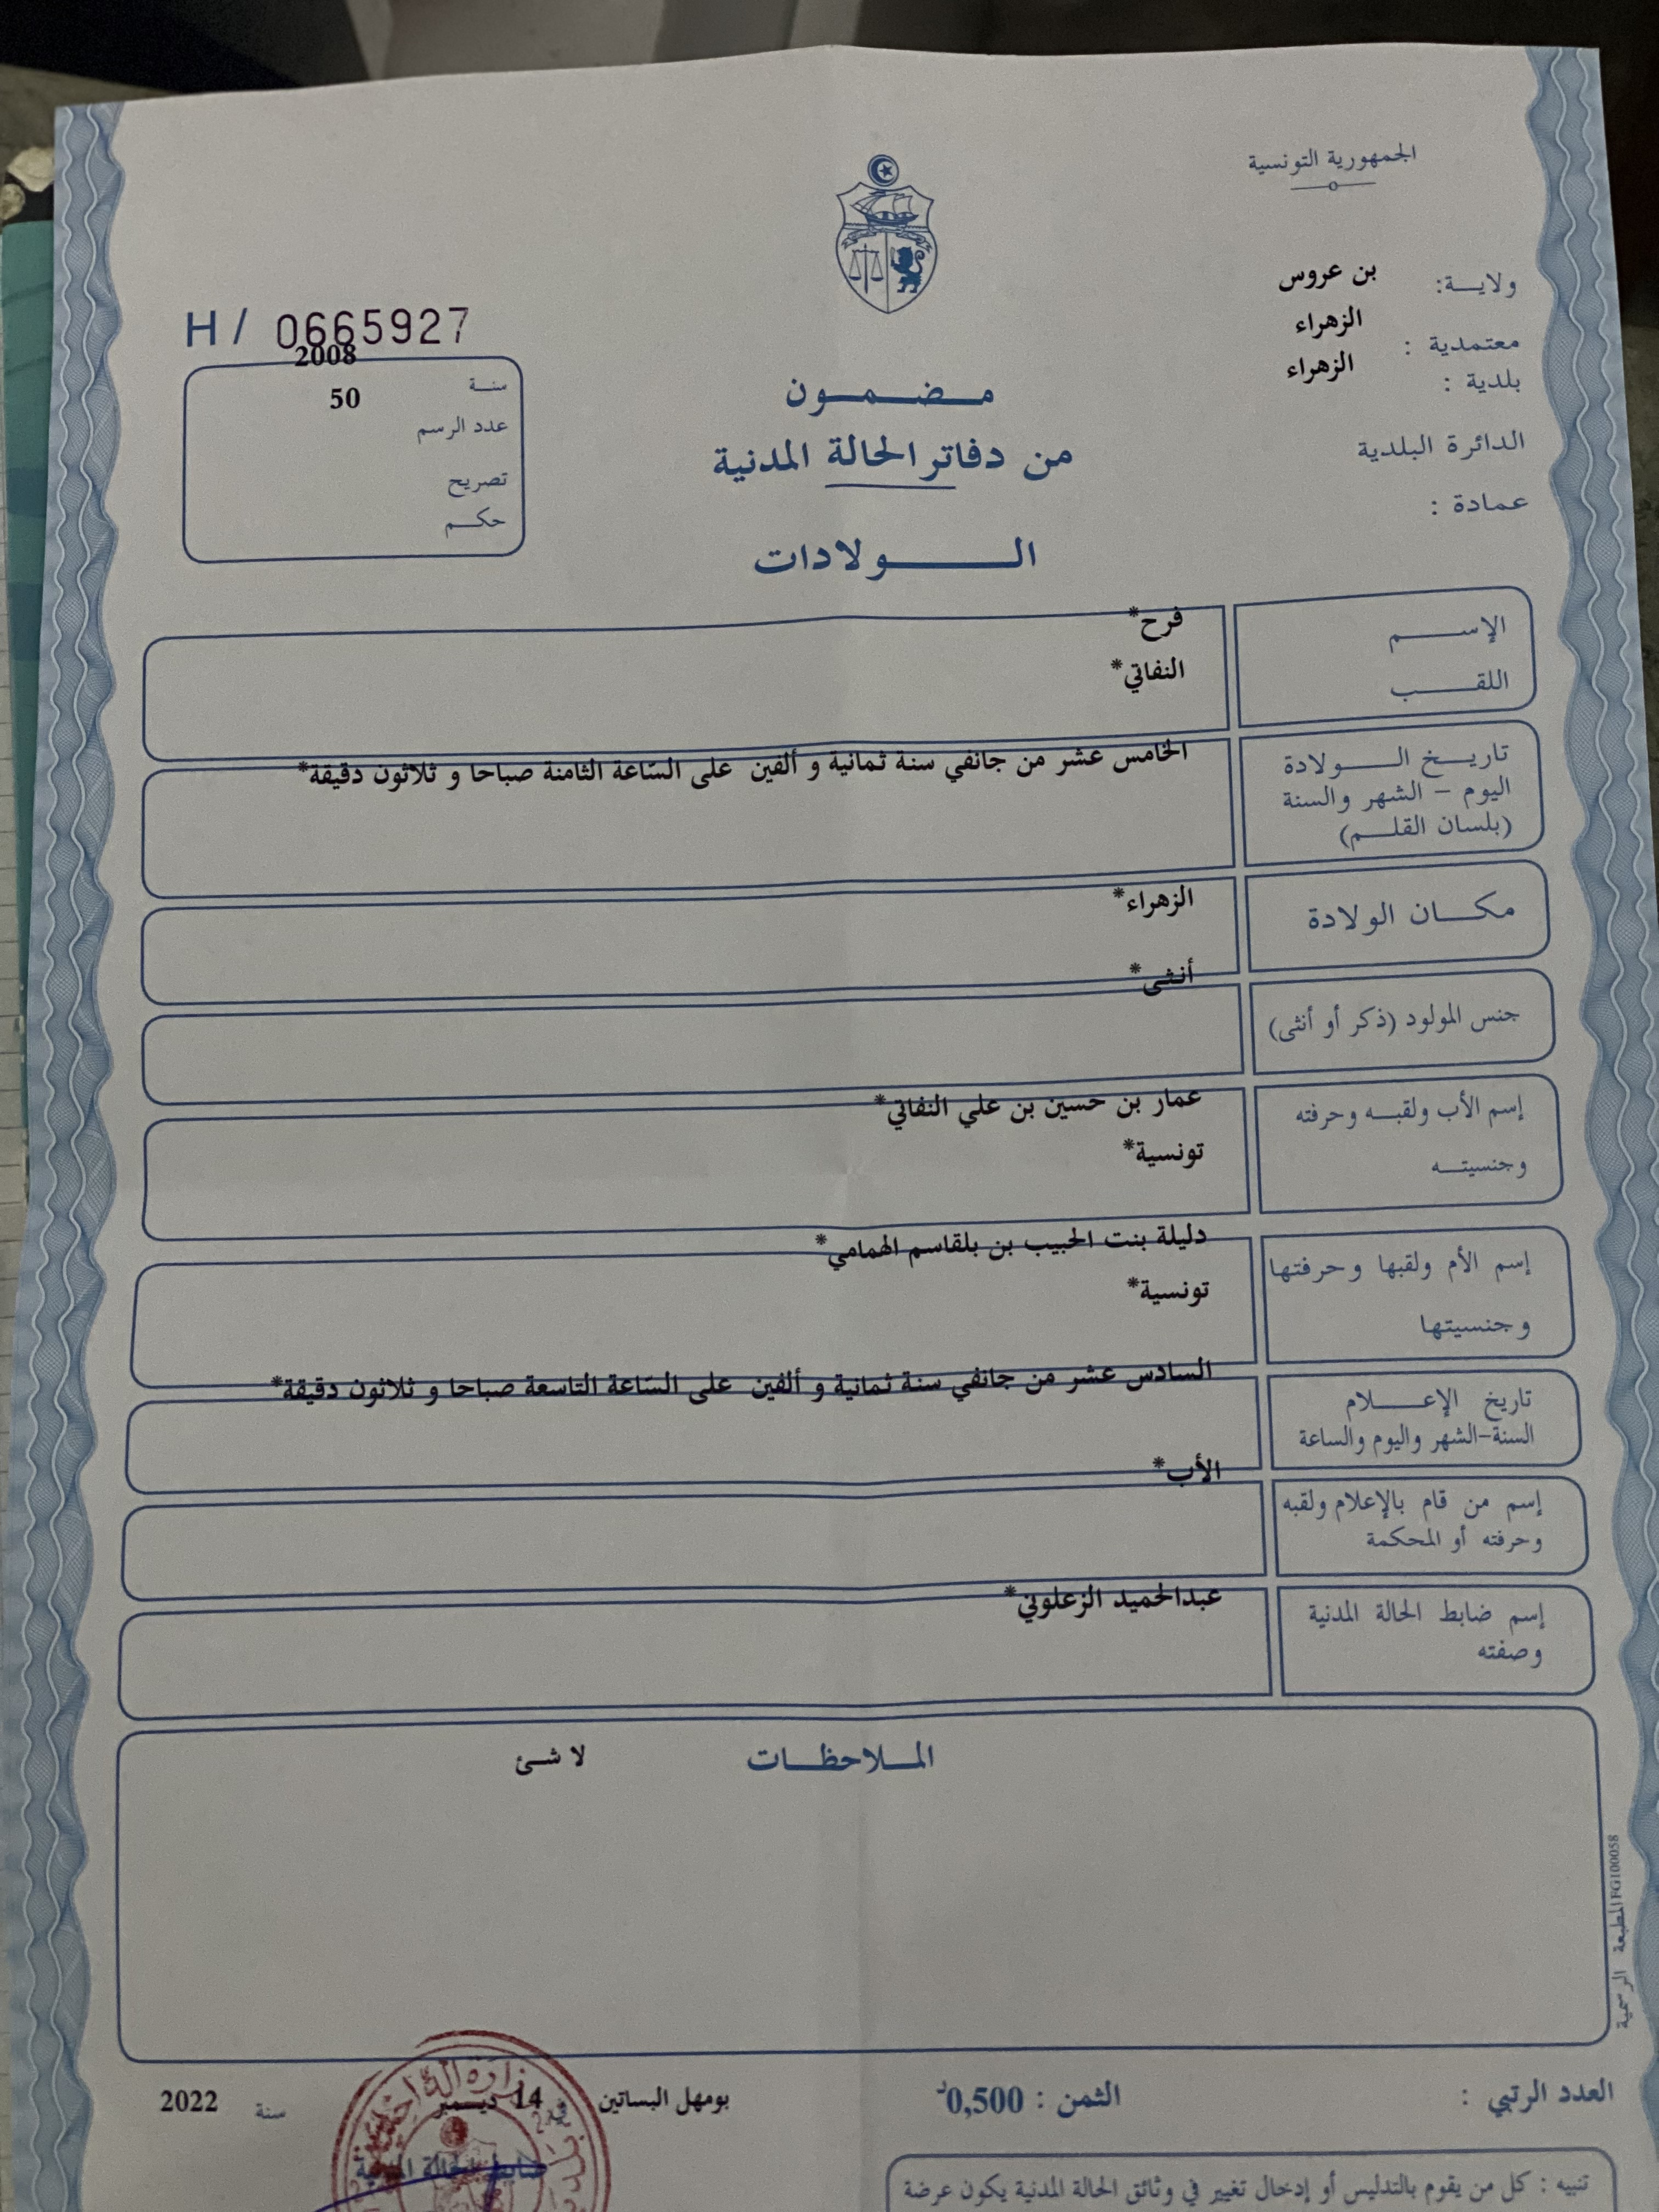 الجمهورية التونسية
ولايـــة: بن عروس
معتمدية : الزهراء
بلدية : الزهراء
الدائرة البلدية
عمادة :
H / 0665927
سنــة 2008
عدد الرسم 50
تصريح
حكــم
مـــضـــمـــون
من دفاتر الحالة المدنية
الـــــولادات
الإســـــم فرح*
اللقـــــب النفاتي*
تاريــخ الـــــولادة
اليوم – الشهر والسنة
(بلسان القلــم)
الخامس عشر من جانفي سنة ثمانية و ألفين على السّاعة الثامنة صباحا و ثلاثون دقيقة*
مكـــان الولادة الزهراء*
جنس المولود (ذكر أو أنثى) أنثى*
إسم الأب ولقبــه وحرفته عمار بن حسين بن علي النفاتي*
وجنسيتــه تونسية*
إسم الأم ولقبها وحرفتها دليلة بنت الحبيب بن بلقاسم الهمامي*
وجنسيتها تونسية*
تاريخ الإعـــــلام
السنة-الشهر واليوم والساعة
السادس عشر من جانفي سنة ثمانية و ألفين على السّاعة التاسعة صباحا و ثلاثون دقيقة*
إسم من قام بالإعلام ولقبه
وحرفته أو المحكمة
الأب*
إسم ضابط الحالة المدنية
وصفته
عبدالحميد الزعلوني*
المـــلاحظـــات لا شئ
المطبعة الرسمية FG100058
العدد الرتبي : الثمن : 0,500د بومهل البساتين في 14 ديسمبر سنة 2022
ضابط الحالة المدنية
تنبيه : كل من يقوم بالتدليس أو إدخال تغيير في وثائق الحالة المدنية يكون عرضة